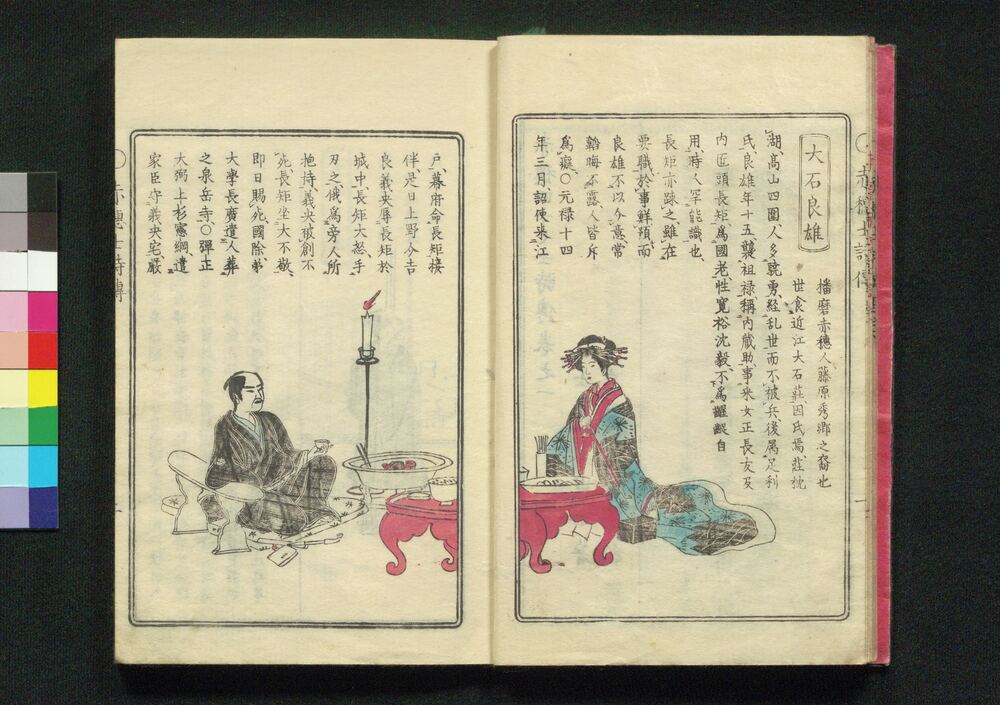 大石良雄
播磨赤穗人藤原秀郷之裔也
世食近江大石莊因氏焉莊枕
湖高山四圍人多驍勇經乱世而不被兵後属足利
氏良雄年十五襲祖禄稱内蔵助事釆女正長友及
内匠頭長矩爲國老性寛裕沈毅不爲齷齪自
用時人罕能識也
長矩亦踈之雖在
要職於事鮮預而
良雄不以介意常
韜晦不露人皆斥
爲癡〇元禄十四
年三月詔使来江
戸幕府命長矩接
伴是日上野介吉
良義央辱長矩於
城中長矩大怒手
刃之俄爲旁人所
抱持義央被創不
死長矩坐大不敬
即日賜死國除弟
大學長廣遣人葬
之泉岳寺〇彈正
大弼上杉憲綱遣
家臣守義央宅嚴
赤穗士詩傳